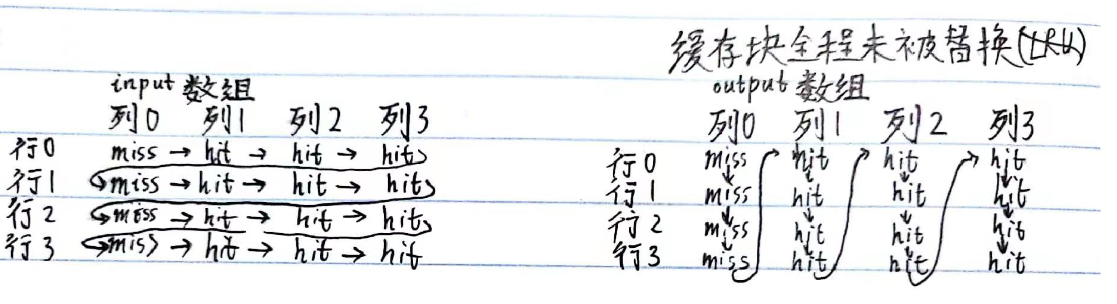 缓存块全程未被替换(LRU)
input 数组
列0 列1 列2 列3
行0 miss → hit → hit → hit
行1 miss → hit → hit → hit
行2 miss → hit → hit → hit
行3 miss → hit → hit → hit
output 数组
列0 列1 列2 列3
行0 miss hit hit hit
行1 miss hit hit hit
行2 miss hit hit hit
行3 miss hit hit hit